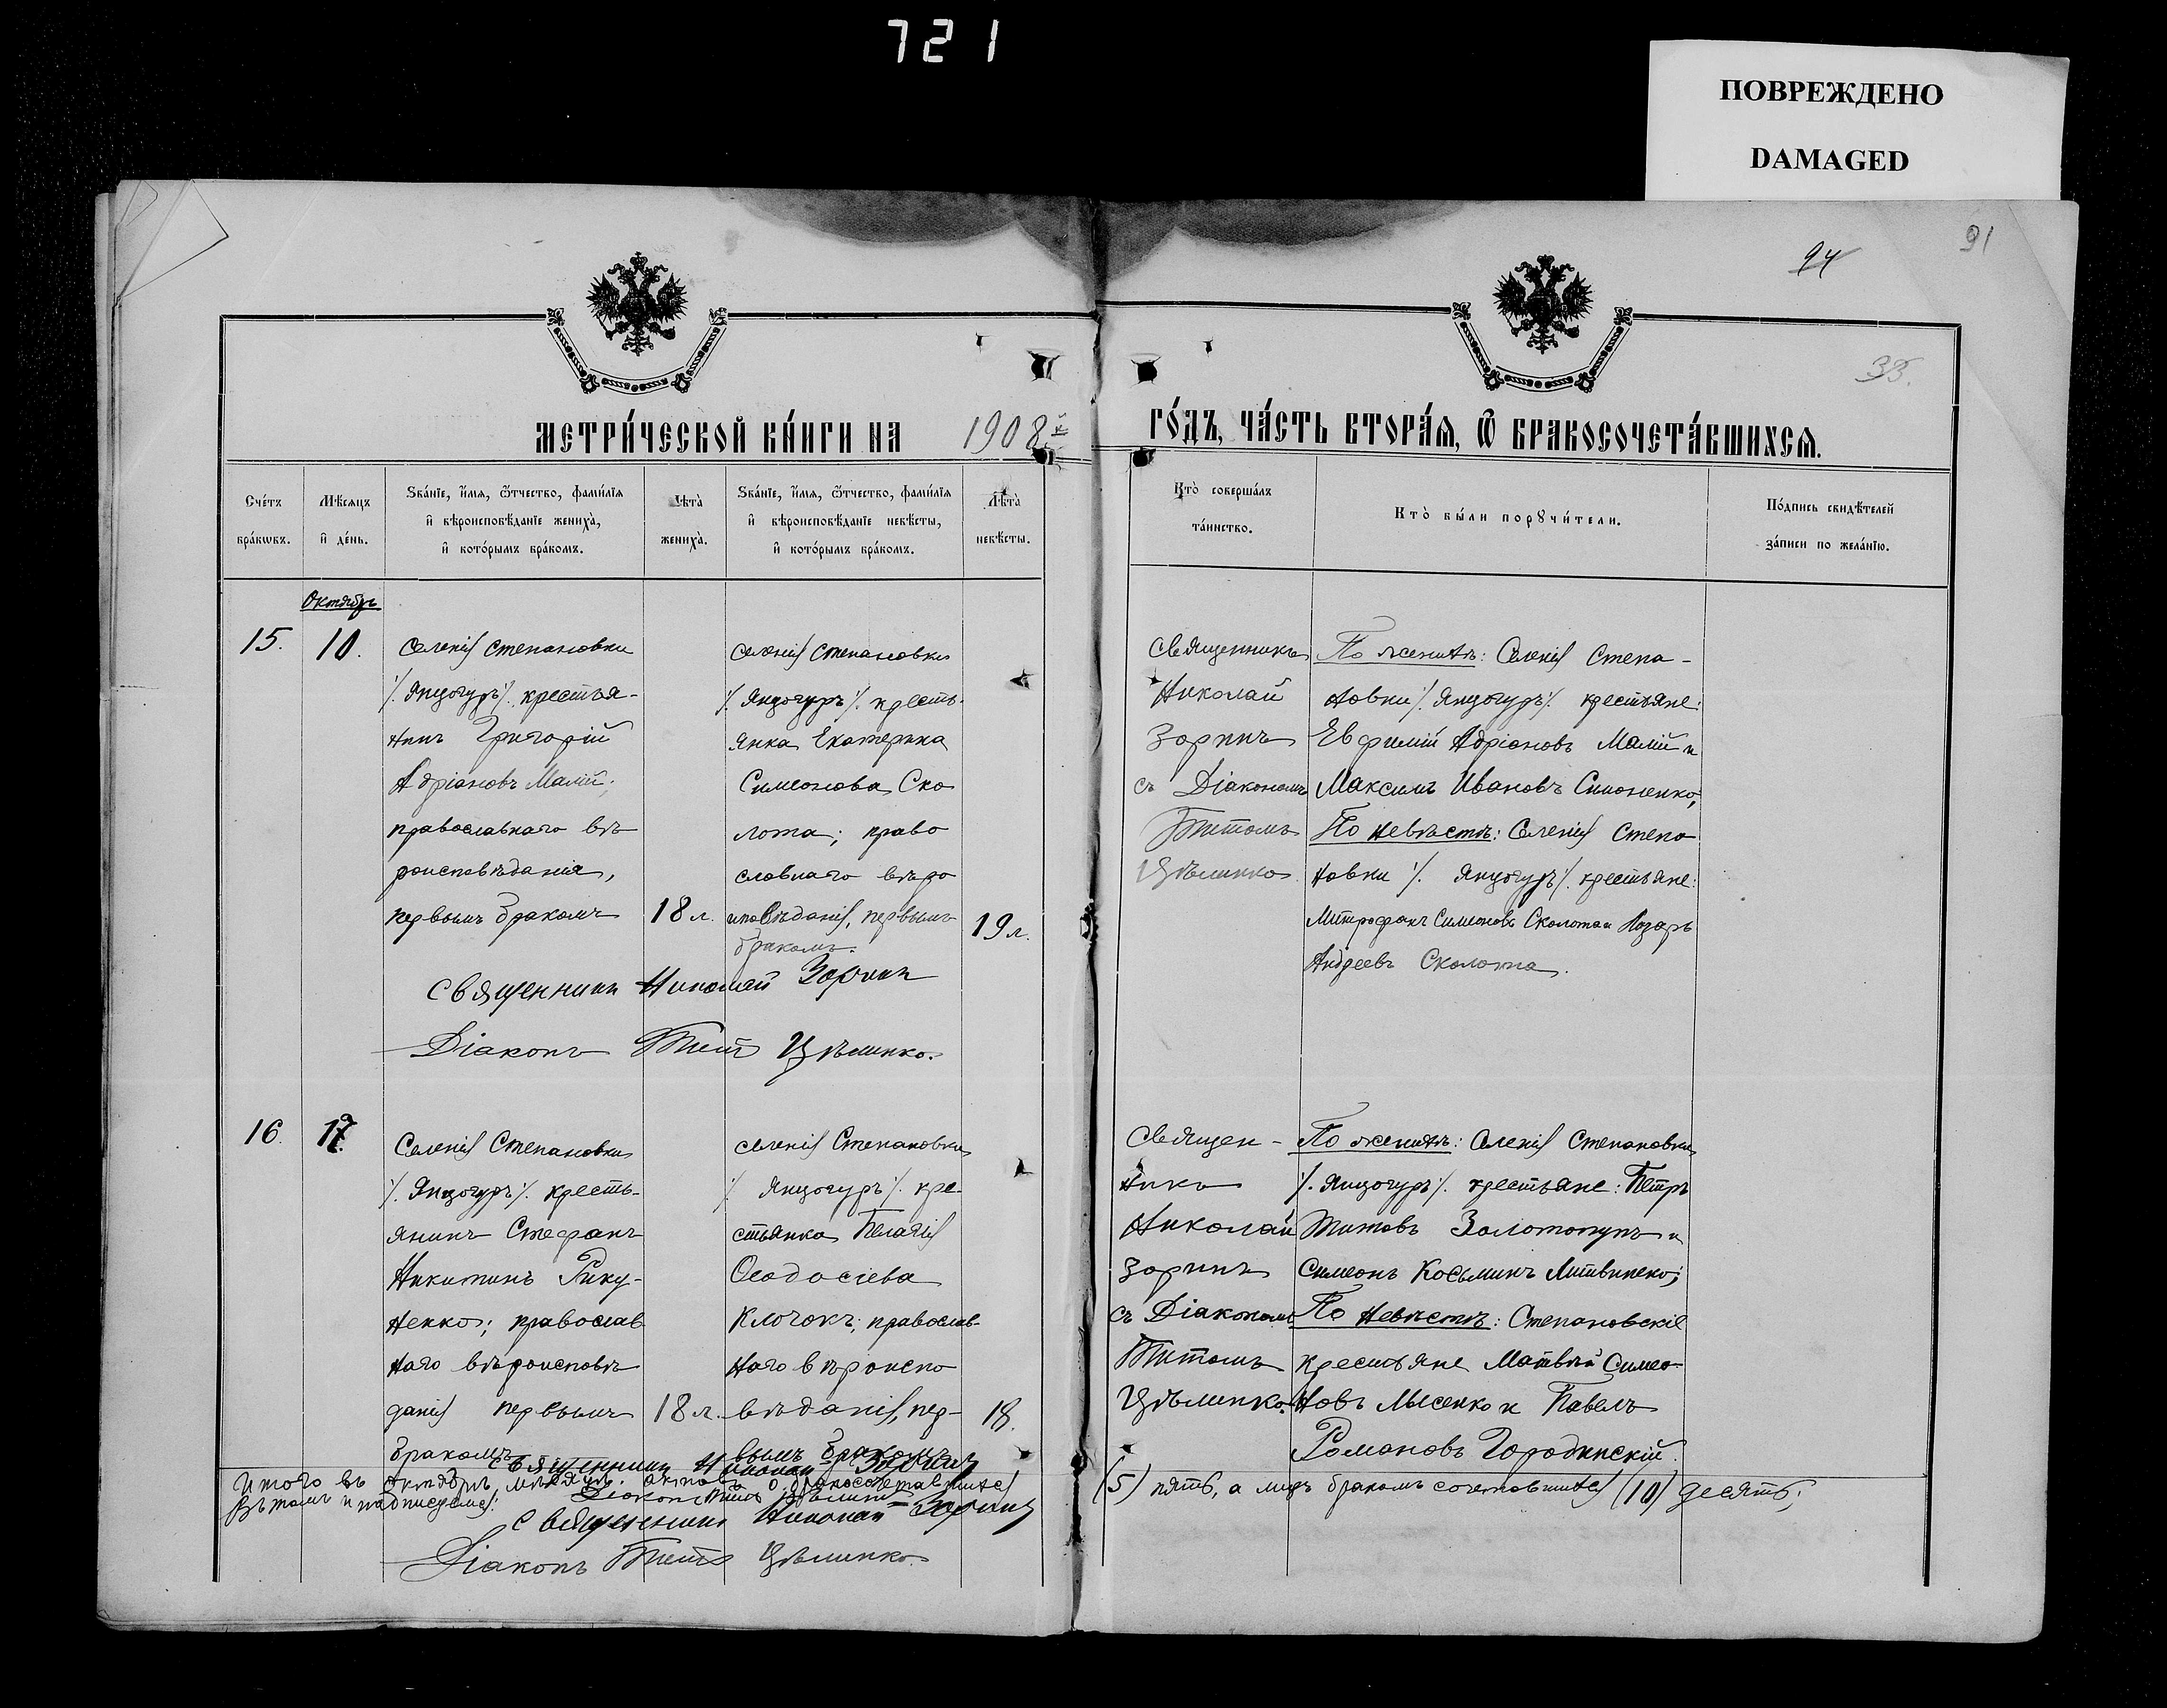 721
ПОВРЕЖДЕНО
DAMAGED
91
94
33.
МЕТРИ́ЧЕСКОЙ КНИ́ГИ НА 1908й
ГО́ДЪ, ЧА́СТЬ ВТОРА́Я, Ѿ БРАКОСОЧЕТА́ВШИХСЯ.
Сче́тъ
бра́кѡвъ.
Мѣ́сяцъ
и҆ де́нь.
Ѕва́нїе, и҆́мя, ѻ҆́тчество, фами́лїя
и҆ вѣроисповѣ́данїе жениха̀,
и҆ кото́рымъ бра́комъ.
Лѣта̀
жениха̀.
Ѕва́нїе, и҆́мя, ѻ҆́тчество, фами́лїя
и҆ вѣроисповѣ́данїе невѣ́сты,
и҆ кото́рымъ бра́комъ.
Лѣта̀
невѣ́сты.
Кто̀ соверша́лъ
та́инство.
Кто̀ бы́ли порꙋчи́тели.
По́дпись свидѣ́телей
за́писи по жела́нїю.
Октябрь
15.
10.
Селенія Степановки
/. Янцогуръ /. крестья-
нинъ Григорій
Адріановъ Малій;
православнаго вѣ
роисповѣданія,
первымъ бракомъ
18 л.
Селенія Степановки
/. Янцогуръ /. кресть-
янка Екатерина
Симеонова Ско
лота; право
славнаго вѣро
исповѣданія, первымъ
бракомъ.
19 л.
Священникъ Николай Зоринъ
Діаконъ Титъ Цѣлинко.
Священникъ
Николай
Зоринъ
съ Діакономъ
Титомъ
Цѣлинко
По женихѣ: Селенія Степа-
новки /. Янцогуръ /. крестьяне:
Евфимій Адріановъ Малій и
Максимъ Ивановъ Симоненко;
По невѣстѣ: Селенія Степа
новки /. Янцогуръ /. крестьяне:
Митрофанъ Симеоновъ Сколота и Назаръ
Андреевъ Сколота.
16.
Селенія Степановки
/. Янцогуръ /. кресть-
янинъ Стефанъ
Никитинъ Рику-
ненко; православ
наго вѣроисповѣ
данія первымъ
бракомъ
18 л.
Селенія Степановки
/. Янцогуръ /. кре-
стьянка Пелагія
Ѳеодосіева
Клочокъ; православ-
наго вѣроиспо
вѣданія, пер-
вымъ бракомъ
18.
Священникъ Николай Зоринъ
Діаконъ Титъ Цѣлинко
Священ-
никъ
Николай
Зоринъ
съ Діакономъ
Титомъ
Цѣлинко.
По женихѣ: Селенія Степановки
/. Янцогуръ /. крестьяне: Петръ
Титовъ Золотопупъ и
Симеонъ Косьминъ Литвиненко;
По невѣстѣ: Степановскіе
крестьяне Матвѣй Симео-
новъ Лысенко и Павелъ
Романовъ Городинскій.
Итого въ октябрѣ мѣсяцѣ актовъ о бракосочетавшихся (5) пять, а лицъ бракомъ сочетавшихся (10) десять;
въ томъ и подписуемся:
Священникъ Николай Зоринъ
Діаконъ Титъ Цѣлинко.